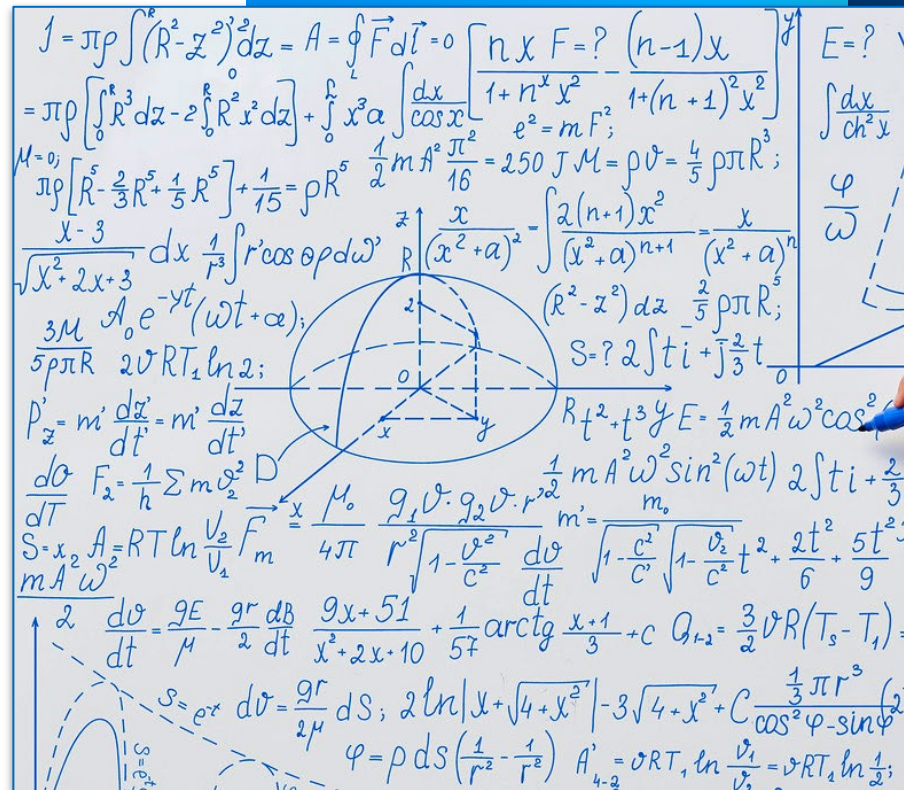 J = πρ ∫₀ᴿ (R² - z²)² dz = A = ∮_L F⃗ dl⃗ = 0 [ n x F = ? / 1 + nˣ x² - (n-1)x / 1 + (n+1)² x² ] y E = ?
= πρ [ ∫₀ᴿ R³ dz - 2 ∫₀ᴿ R² x² dz ] + ∫₀ x³ a ∫ dx / cos x e² = m F²; ∫ dx / ch² x
μ = 0; πρ [ R⁵ - 2/3 R⁵ + 1/5 R⁵ ] + 1/15 = ρR⁵ 1/2 m A² π²/16 = 250 J M = ρυ = 4/5 ρπR³; φ/ω
x - 3 / √(x² + 2x + 3) dx 1/r³ ∫ r' cos θρ dω' z R x / (x² + a)² - ∫ 2(n+1)x² / (x² + a)ⁿ⁺¹ = x / (x² + a)ⁿ
A₀ e⁻ʸᵗ (ωt + a); 2 (R² - z²) dz 2/5 ρπR⁵;
3M / 5ρπR 2υRT₁ ln 2; O S = ? 2∫ti + j 2/3 t O
P'z = m' dz' / dt' = m' dz / dt' x y R t² + t³ y E = 1/2 m A² ω² cos²
dυ / dT F₂ = 1/h Σ m υ₂² D 1/2 m A² ω² sin² (ωt) 2∫ti + 2/3
S = x₂ A = RT ln V₂/V₁ x F⃗m = μ₀ / 4π g₁υ · g₂υ · r' / r² √(1 - υ²/c²) dυ / dt m' = m₀ / √(1 - c²/c') √(1 - υ₂/c²) t² + 2t²/6 + 5t²/9
m A² ω² / 2 dυ / dt = gE / μ - gr / 2 dB / dt 9x + 51 / x² + 2x + 10 + 1/57 arctg x + 1 / 3 + C Q₁₋₂ = 3/2 υR(Tₛ - T₁) =
S = e⁻ᵗ dυ = gr / 2μ dS; 2 ln |x + √(4 + x²)| - 3√(4 + x²) + C 1/3 πr³ / cos² φ - sin φ (2
φ = ρ ds (1/r² - 1/r²) A'₄₋₂ = υRT₁ ln υ₁/υ₂ = υRT₁ ln 1/2;